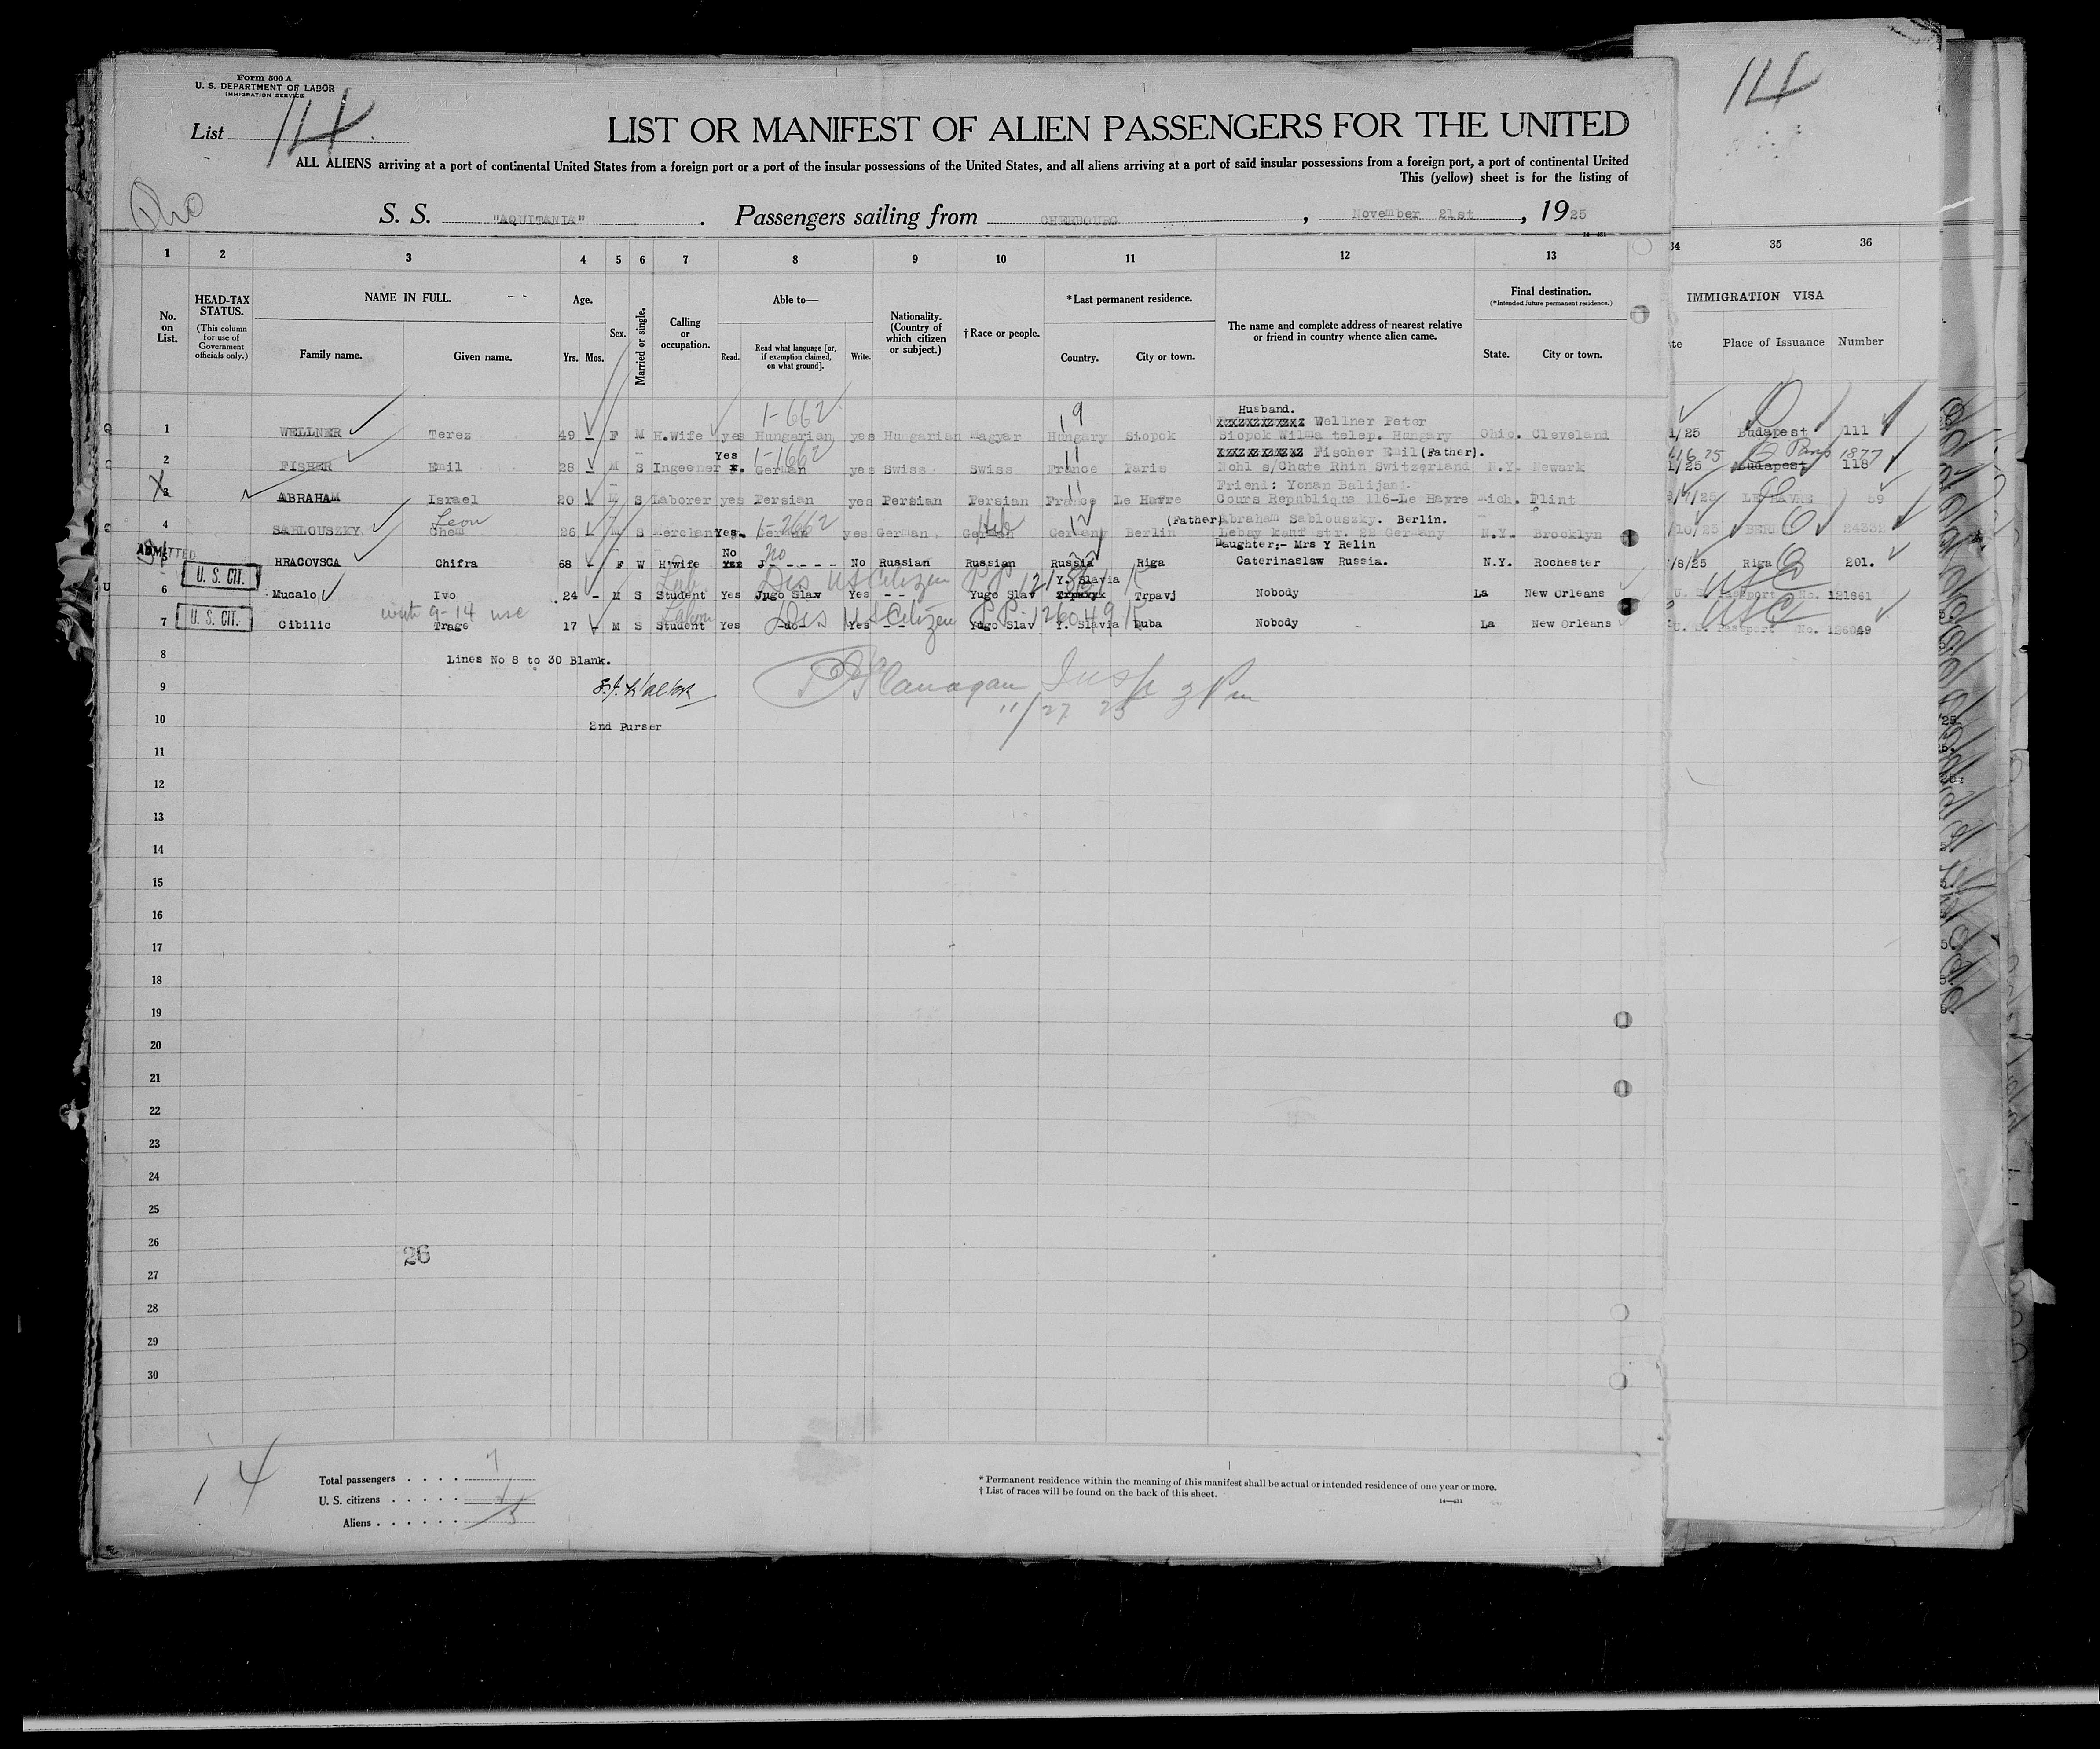 Form 500 A
U. S. DEPARTMENT OF LABOR
IMMIGRATION SERVICE
List 14
14
LIST OR MANIFEST OF ALIEN PASSENGERS FOR THE UNITED
ALL ALIENS arriving at a port of continental United States from a foreign port or a port of the insular possessions of the United States, and all aliens arriving at a port of said insular possessions from a foreign port, a port of continental United
This (yellow) sheet is for the listing of
S. S. "AQUITANIA". Passengers sailing from CHERBOURG, November 21st, 1925
1 2 3 4 5 6 7 8 9 10 11 12 13 34 35 36
No. on List.
HEAD-TAX STATUS.
(This column for use of Government officials only.)
NAME IN FULL.
Family name. Given name.
Age.
Yrs. Mos.
Sex.
Married or single.
Calling or occupation.
Able to—
Read. Read what language [or, if exemption claimed, on what ground]. Write.
Nationality. (Country of which citizen or subject.)
†Race or people.
*Last permanent residence.
Country. City or town.
The name and complete address of nearest relative or friend in country whence alien came.
Final destination.
(*Intended future permanent residence.)
State. City or town.
IMMIGRATION VISA
Place of Issuance Number
1-662 9 Husband.
Wellner Peter
1 WELLNER Terez 49 - F M H.Wife yes Hungarian yes Hungarian Magyar Hungary Siopok Siopok Wilma telep. Hungary Ohio. Cleveland 1/25 Budapest 111
Yes 1-1662 11 Fischer Emil (Father). Paris 1877
2 FISHER Emil 28 - M S Ingeener x. German yes Swiss Swiss France Paris Mohl s/Chute Rhin Switzerland N.Y. Newark 1/25 Budapest 118
11 Friend: Yonan Balijani
3 ABRAHAM Israel 20 - M S Laborer yes Persian yes Persian Persian France Le Havre Cours Republique 116-Le Havre Mich. Flint /7/25 LE HAVRE 59
Leon 1-2662 Heb 12 (Father) Abraham Sablouszky. Berlin.
4 SABLOUSZKY Chem 26 - M S Merchant Yes. German yes German German Germany Berlin Lebay kanf str. 22 Germany N.Y. Brooklyn /10/25 24332
ADMITTED No no Daughter:- Mrs Y Relin
HRACOVSCA Chifra 68 - F W H'wife Yes J- - - - - - No Russian Russian Russia Riga Caterinaslaw Russia. N.Y. Rochester /8/25 Riga 201.
U. S. CIT. Dis US Citizen PP Y. Slavia USC
6 Mucalo Ivo 24 - M S Student Yes Jugo Slav Yes - - Yugo Slav Trpavj Nobody La New Orleans U. S. Passport No. 121861
U. S. CIT. with 9-14 usc Dis US Citizen PP. 126049 USC
7 Cibilic Trage 17 M S Student Yes -do- Yes - - Yugo Slav Y. Slavia Luba Nobody La New Orleans U. S. Passport No. 126049
8 Lines No 8 to 30 Blank.
9 Flanagan Insp 3 Pm
11/27 25
10 2nd Purser
11
12
13
14
15
16
17
18
19
20
21
22
23
24
25
26 26
27
28
29
30
14
Total passengers . . . . 7
U. S. citizens . . . . .
Aliens . . . . . . 5
* Permanent residence within the meaning of this manifest shall be actual or intended residence of one year or more.
† List of races will be found on the back of this sheet.